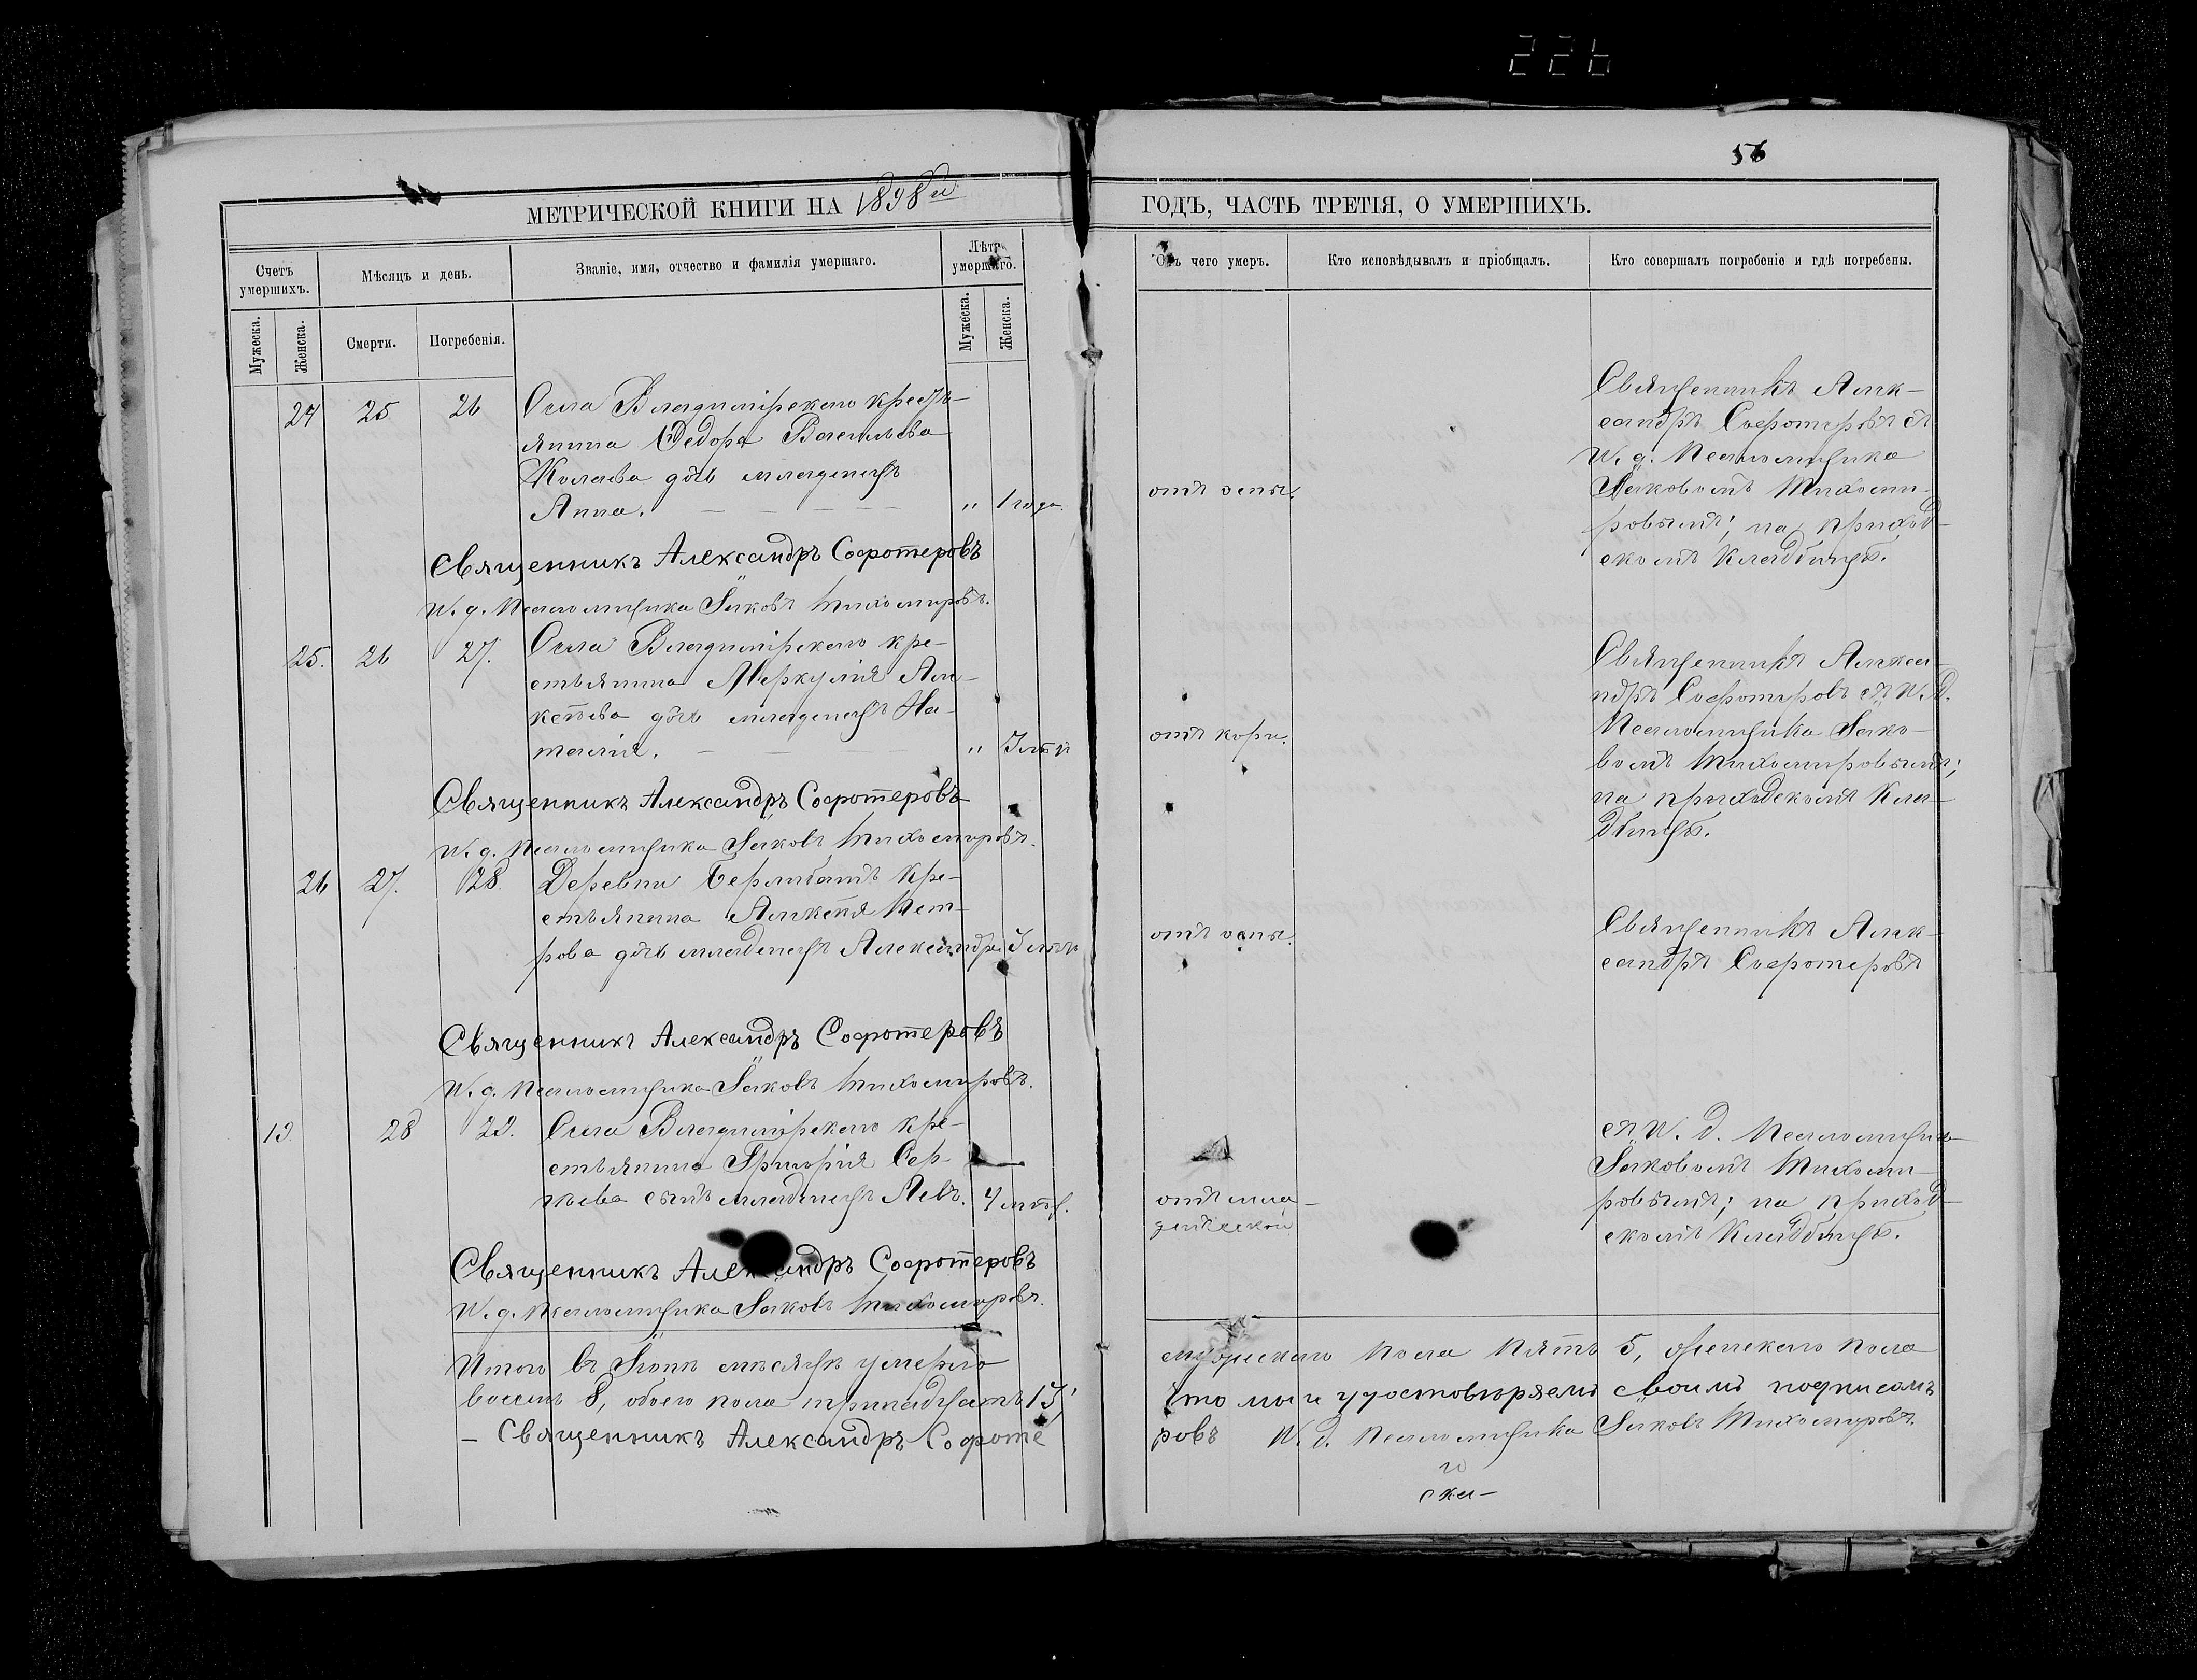 226
56
МЕТРИЧЕСКОЙ КНИГИ НА 1898й
ГОДЪ, ЧАСТЬ ТРЕТІЯ, О УМЕРШИХЪ.
Счетъ умершихъ.
Мѣсяцъ и день.
Званіе, имя, отчество и фамилія умершаго.
Лѣта умершаго.
Мужеска.
Женска.
Смерти.
Погребенія.
Мужеска.
Женска.
Отъ чего умеръ.
Кто исповѣдывалъ и пріобщалъ.
Кто совершалъ погребеніе и гдѣ погребены.
24 25 26 Села Владимірскаго кресть-
янина Ѳедора Васильева
дочь младенецъ
Анна. — — — — — „ 1 года
отъ оспы.
Священникъ Алек-
сандръ Софотеровъ съ
И. д. Псаломщика
Іаковомъ Тихоми-
ровымъ; на приход-
скомъ кладбищѣ.
Священникъ Александръ Софотеровъ
И. д. Псаломщика Іаковъ Тихомировъ.
25. 26 27. Села Владимірскаго кре-
стьянина Меркулія Але-
ксѣева дочь младенецъ На-
талія. — — — „ 3 лѣтъ
отъ кори.
Священникъ Алекса-
ндръ Софотеровъ съ И. Д.
Псаломщика Іако-
вомъ Тихомировымъ;
на приходскомъ клад-
дбищѣ.
Священникъ Александръ Софотеровъ
И. д. Псаломщика Іаковъ Тихомировъ.
26 27. 28. Деревни кре-
стьянина Алексѣя Пет-
рова дочь младенецъ Александра 3 лѣтъ
отъ оспы.
Священникъ Алек-
сандръ Софотеровъ
Священникъ Александръ Софотеровъ
И. д. Псаломщика Іаковъ Тихомировъ.
19 28 29. Села Владимірскаго кре-
стьянина Григорія Сер-
гѣева сынъ младенецъ Левъ. 4 мѣс.
отъ мла-
денческой
съ И. д. Псаломщика
Іаковомъ Тихоми-
ровымъ; на приход-
скомъ Кладбищѣ.
Священникъ Александръ Софотеровъ
И. д. Псаломщика Іаковъ Тихомировъ.
Итого въ Іюнѣ мѣсяцѣ умерло
мужескаго пола пять 5, женскаго пола
восемь 8, обоего пола тринадцать 13;
Что мы и удостовѣряемъ своимъ подписомъ
— Священникъ Александръ Софоте
ровъ И. д. Псаломщика Іаковъ Тихомировъ.